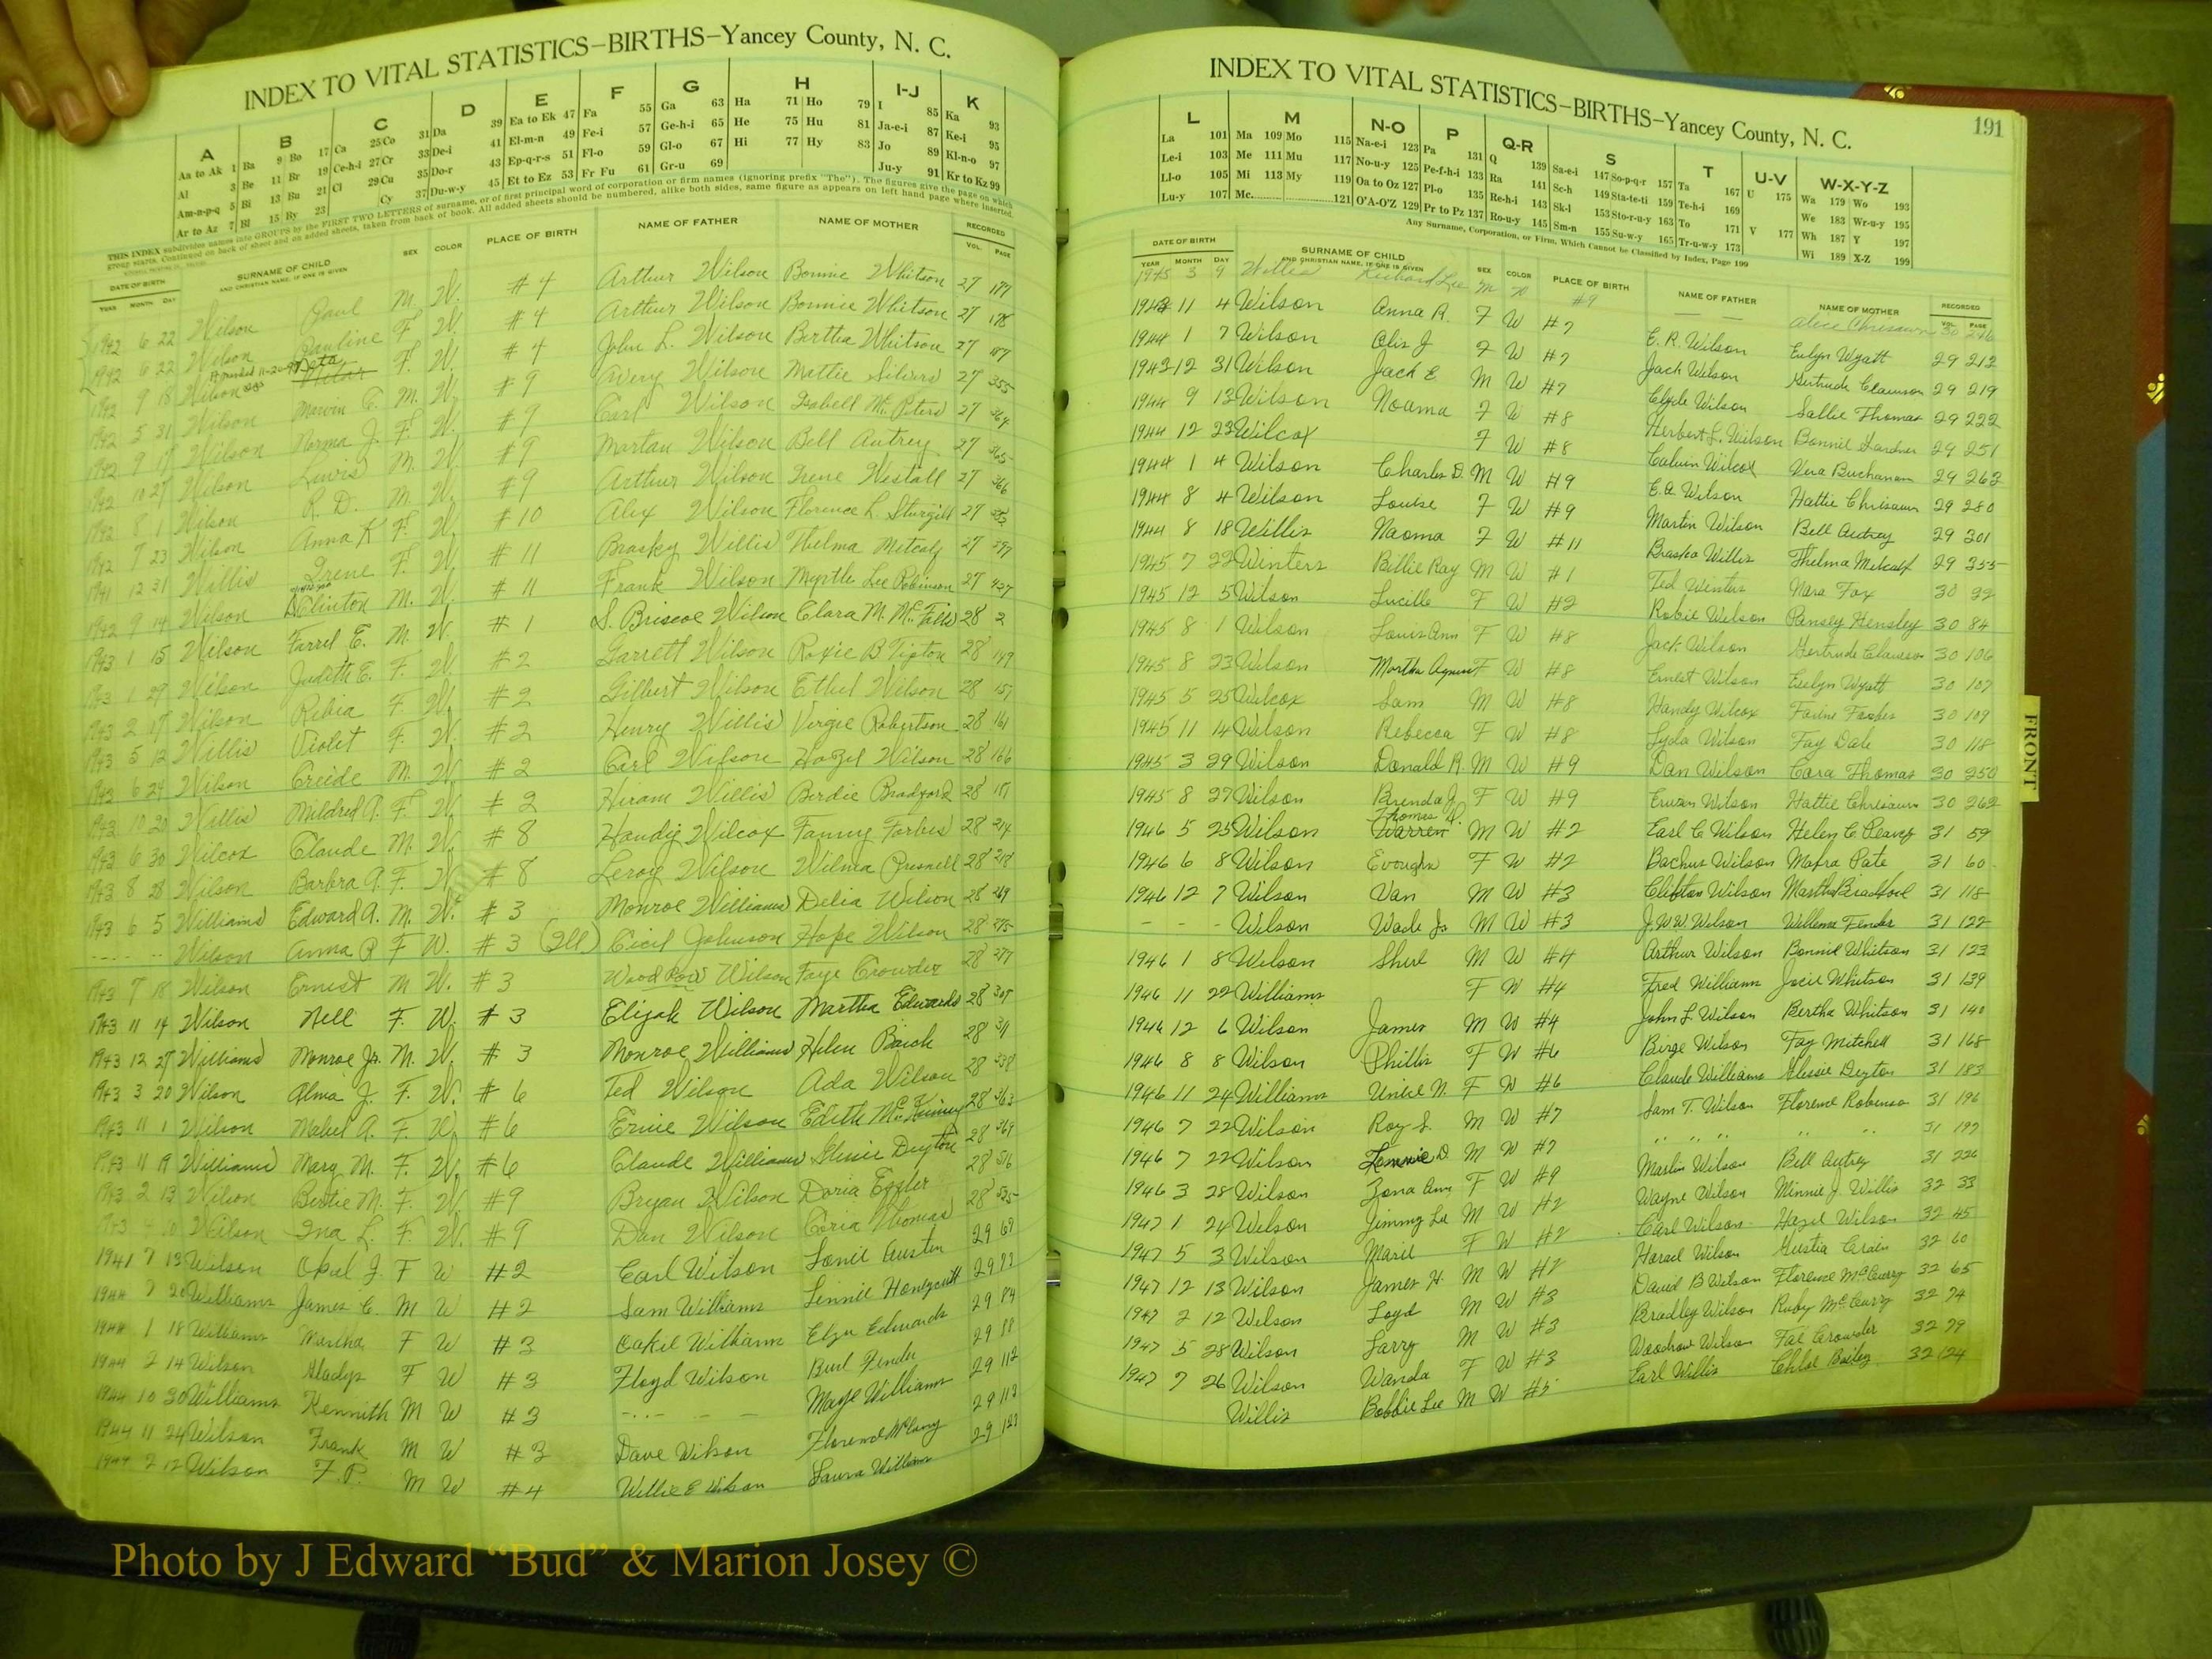 INDEX TO VITAL STATISTICS–BIRTHS–Yancey County, N. C.
A B C D E F G H I-J K
Aa to Ak 1 Ba 9 Bo 17 Ca 25 Co 31 Da 39 Ea to Ek 47 Fa 55 Ga 63 Ha 71 Ho 79 I 85 Ka 93
Al 3 Be 11 Br 19 Ce-h-i 27 Cr 33 De-i 41 El-m-n 49 Fe-i 57 Ge-h-i 65 He 75 Hu 81 Ja-e-i 87 Ke-i 95
Am-n-p-q 5 Bi 13 Bu 21 Cl 29 Cu 35 Do-r 43 Ep-q-r-s 51 Fl-o 59 Gl-o 67 Hi 77 Hy 83 Jo 89 Kl-n-o 97
Ar to Az 7 Bl 15 By 23 Cy 37 Du-w-y 45 Et to Ez 53 Fr Fu 61 Gr-u 69 Ju-y 91 Kr to Kz 99
THIS INDEX subdivides names into GROUPS by the FIRST TWO LETTERS of surname, or of first principal word of corporation or firm names (ignoring prefix "The"). The figures give the page on which
group starts. Continued on back of sheet and on added sheets, taken from back of book. All added sheets should be numbered, alike both sides, same figure as appears on left hand page where inserted.
DATE OF BIRTH SURNAME OF CHILD SEX COLOR PLACE OF BIRTH NAME OF FATHER NAME OF MOTHER RECORDED
YEAR MONTH DAY AND CHRISTIAN NAME, IF ONE IS GIVEN VOL. PAGE
1942 6 22 Wilson Paul M. W. #4 Arthur Wilson Bonnie Whitson 27 177
1942 6 22 Wilson Pauline F. W. #4 Arthur Wilson Bonnie Whitson 27 178
1942 9 18 Wilson Neta F. W. #4 John L. Wilson Birtha Whitson 27 187
1942 5 31 Wilson Marvin C. M. W. #9 Avery Wilson Mattie Silvers 27 355
1942 9 17 Wilson Norma J. F. W. #9 Carl Wilson Isabell Mc Peters 27 364
1942 10 27 Wilson Lewis M. W. #9 Martan Wilson Bell Autrey 27 365
1942 8 1 Wilson R. D. M. W. #9 Arthur Wilson Irene Westall 27 366
1942 7 23 Wilson Anna K F. W. #10 Alex Wilson Florence L. Sturgill 27
1941 12 31 Willis Irene F. W. #11 Brasky Willis Thelma Metcalf 27 397
1942 9 14 Wilson D. Clinton M. W. #11 Frank Wilson Myrtle Lee Robinson 27 427
1943 1 15 Wilson Farrel E. M. W. #1 S. Briscoe Wilson Clara M. Mc Falls 28 2
1943 1 29 Wilson Judith E. F. W. #2 Garrett Wilson Roxie B Tipton 28 149
1943 2 17 Wilson Ribia F. W. #2 Gilbert Wilson Ethel Wilson 28 157
1943 5 12 Willis Violet F. W. #2 Henry Willis Virgie Robertson 28 161
1943 6 24 Wilson Creide M. W. #2 Carl Wilson Hazel Wilson 28 166
1942 10 20 Willis Mildred A. F. W. #2 Hiram Willis Birdie Bradford 28 187
1943 6 30 Wilcox Claude M. W. #8 Handy Wilcox Fanny Forbes 28 214
1943 8 28 Wilson Barbra A. F. W. #8 Leroy Wilson Wilma Presnell 28 218
1943 6 5 Williams Edward A. M. W. #3 Monroe Williams Delia Wilson 28 269
---- -- Wilson Anna P F W. #3 (Ill) Cicil Johnson Hope Wilson 28 275
1943 7 18 Wilson Ernest M W. #3 Wood Row Wilson Faye Crowder 28 277
1943 11 14 Wilson Nell F. W. #3 Elijah Wilson Martha Edwards 28 307
1943 12 27 Williams Monroe Jr. M. W. #3 Monroe Williams Helen Baich 28 311
1943 3 20 Wilson Alma J. F. W. #6 Ted Wilson Ada Wilson 28 338
1943 11 1 Wilson Mabel A. F. W. #6 Ernie Wilson Edith McKinney 28 363
1943 11 19 Williams Mary M. F. W. #6 Claude Williams Glessie Deyton 28 369
1943 2 13 Wilson Bertie M. F. W. #9 Bryan Wilson Doria Ezzler 28 516
1943 4 10 Wilson Ina L. F. W. #9 Dan Wilson Coria Thomas 28 525
1941 7 13 Wilson Opal J. F W #2 Earl Wilson Lonie Austin 29 69
1944 7 20 Williams James C. M W #2 Sam Williams Linnie Honeycutt 29 73
1944 1 18 Williams Martha F W #3 Oakel Williams Elzie Edwards 29 84
1944 2 14 Wilson Gladys F W #3 Floyd Wilson Burl Fender 29 88
1944 10 30 Williams Kennith M W #3 ----- Marge Williams 29 112
1944 11 24 Wilson Frank M W #3 Dave Wilson Florence McCurry 29 113
1944 2 12 Wilson F. P. M W #4 Willie E Wilson Laura Williams 29 123
INDEX TO VITAL STATISTICS–BIRTHS–Yancey County, N. C. 191
L M N-O P Q-R S T U-V W-X-Y-Z
La 101 Ma 109 Mo 115 Na-e-i 123 Pa 131 Q 139 Sa-e-i 147 So-p-q-r 157 Ta 167 U 175 Wa 179 Wo 193
Le-i 103 Me 111 Mu 117 No-u-y 125 Pe-f-h-i 133 Ra 141 Sc-h 149 Sta-te-ti 159 Te-h-i 169 We 183 Wr-u-y 195
Ll-o 105 Mi 113 My 119 Oa to Oz 127 Pl-o 135 Re-h-i 143 Sk-l 153 Sto-r-u-y 163 To 171 V 177 Wh 187 Y 197
Lu-y 107 Mc 121 O'A-O'Z 129 Pr to Pz 137 Ro-u-y 145 Sm-n 155 Su-w-y 165 Tr-u-w-y 173 Wi 189 X-Z 199
Any Surname, Corporation, or Firm, Which Cannot be Classified by Index, Page 199
DATE OF BIRTH SURNAME OF CHILD SEX COLOR PLACE OF BIRTH NAME OF FATHER NAME OF MOTHER RECORDED
YEAR MONTH DAY AND CHRISTIAN NAME, IF ONE IS GIVEN VOL. PAGE
1945 3 9 Willis Richard Lee M W #9 -- -- Alice Chrisawn 30 246
1943 11 4 Wilson Anna R. F W #7 E. R. Wilson Evelyn Wyatt 29 212
1944 1 7 Wilson Olis J F W #7 Jack Wilson Gertrude Clawson 29 219
1943 12 31 Wilson Jack E M W #7 Clyde Wilson Sallie Thomas 29 222
1944 9 13 Wilson Noama F W #8 Herbert L. Wilson Bonnie Gardner 29 251
1944 12 23 Wilcox F W #8 Calvin Wilcox Vera Buchanan 29 262
1944 1 4 Wilson Charles D. M W #9 E.A. Wilson Hattie Chrisawn 29 280
1944 8 4 Wilson Louise F W #9 Martin Wilson Bell Autrey 29 301
1944 8 18 Willis Naoma F W #11 Brasko Willis Thelma Metcalf 29 355
1945 7 22 Winters Billie Ray M W #1 Ted Winters Nara Fox 30 22
1945 12 5 Wilson Lucille F W #2 Robie Wilson Pansey Hensley 30 84
1945 8 1 Wilson Louis Ann F W #8 Jack Wilson Gertrude Clawson 30 106
1945 8 23 Wilson Martha Agnes F W #8 Ernest Wilson Evelyn Wyatt 30 107
1945 5 25 Wilcox Sam M W #8 Handy Wilcox Fanine Forbes 30 109
1945 11 14 Wilson Rebecca F W #8 Lyda Wilson Fay Dale 30 118
1945 3 29 Wilson Donald R. M W #9 Dan Wilson Cora Thomas 30 250
1945 8 27 Wilson Brenda J. F W #9 Erwin Wilson Hattie Chrisawn 30 262
1946 5 25 Wilson Thomas Warren M W #2 Earl C Wilson Helen C Peavey 31 59
1946 6 8 Wilson Evaughn F W #2 Bachus Wilson Mafra Pate 31 60
1946 12 7 Wilson Van M W #3 Clifton Wilson Martha Bradford 31 118
- - - Wilson Wade Jr M W #3 J.W.W. Wilson Willma Fender 31 122
1946 1 8 Wilson Shirl M W #4 Arthur Wilson Bonnie Whitson 31 123
1946 11 22 Williams F W #4 Fred Williams Jocie Whitson 31 139
1946 12 6 Wilson James M W #4 John L Wilson Bertha Whitson 31 140
1946 8 8 Wilson Phillis F W #6 Birge Wilson Fay Mitchell 31 168
1946 11 24 Williams Unice N. F W #6 Claude Williams Glessie Deyton 31 183
1946 7 22 Wilson Roy S. M W #7 Sam T. Wilson Florence Robinson 31 196
1946 7 22 Wilson Lonnie D M W #7 " " " " " 31 197
1946 3 28 Wilson Zona Ann F W #9 Marlin Wilson Bell Autrey 31 226
1947 1 24 Wilson Jimmy Lee M W #2 Wayne Wilson Minnie J. Willis 32 33
1947 5 3 Wilson Marie F W #2 Carl Wilson Hazel Wilson 32 45
1947 12 13 Wilson James H. M W #2 Horace Wilson Gustia Crain 32 60
1947 2 12 Wilson Loyd M W #3 David B Wilson Florence McCurry 32 65
1947 5 28 Wilson Larry M W #3 Bradley Wilson Ruby McCurry 32 74
1947 7 26 Wilson Wanda F W #3 Woodrow Wilson Fae Crowder 32 79
Willis Bobbie Lee M W #5 Earl Willis Chloe Bailey 32 124
FRONT
Photo by J Edward “Bud” & Marion Josey ©